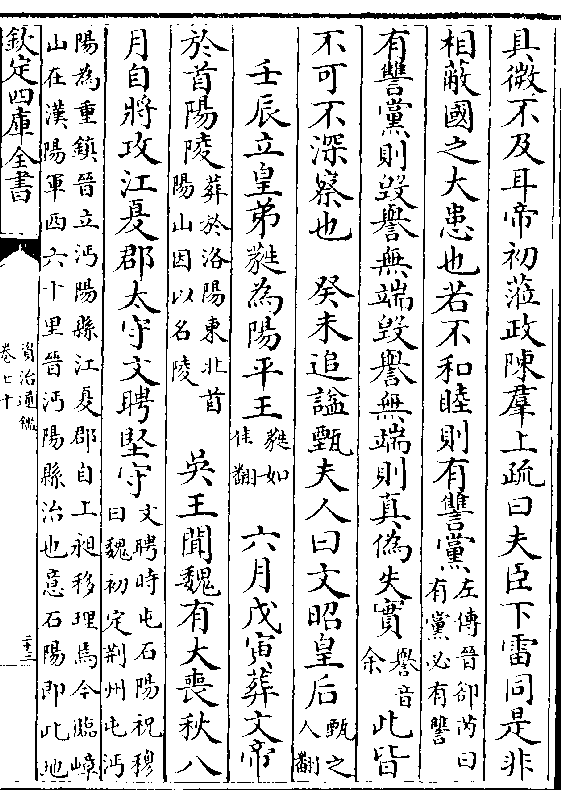 具微不及耳帝初蒞政陳羣上疏曰夫臣下雷同是非
相蔽國之大患也若不和睦則有讐黨左傳晉卻芮曰有黨必有讐
有讐黨則毀譽無端毀譽無端則真偽失實譽音余此皆
不可不深察也 癸未追諡甄夫人曰文昭皇后甄之人翻
壬辰立皇弟蕤為陽平王蕤如佳翻 六月戊寅葬文帝
於首陽陵葬於洛陽東北首陽山因以名陵 吳王聞魏有大喪秋八
月自將攻江夏郡太守文聘堅守文聘時屯石陽祝穆曰魏初定荆州屯沔
陽為重鎮晉立沔陽縣江夏郡自上昶移理焉今臨嶂
山在漢陽軍西六十里晉沔陽縣治也意石陽即此地
欽定四庫全書
資治通鑑
卷七十
二十三